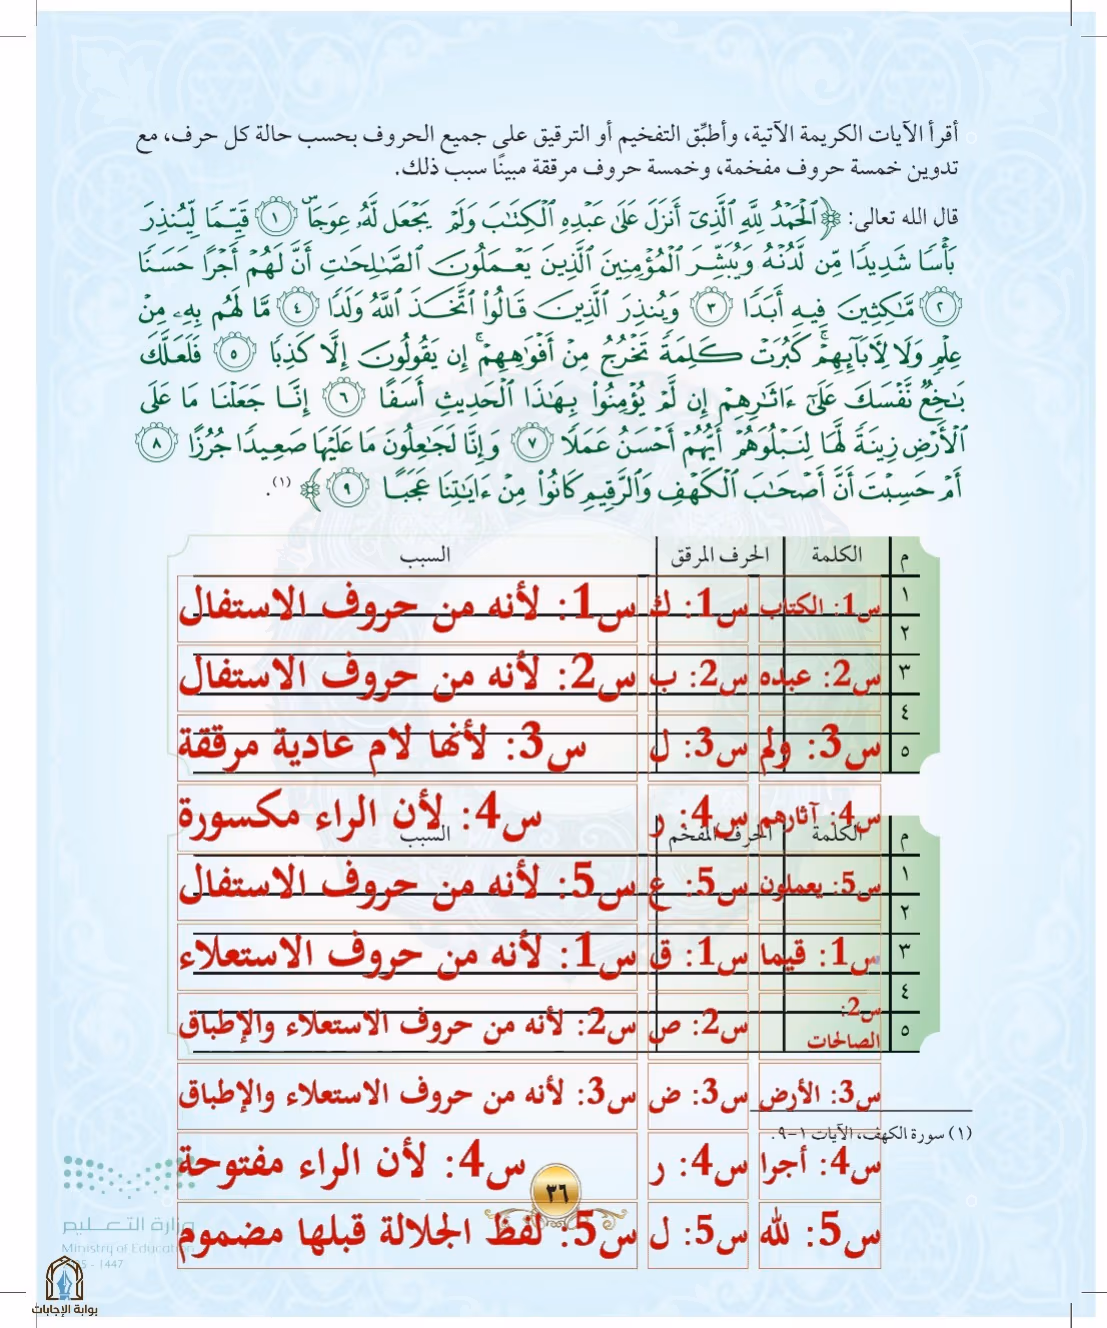 أقرأ الآيات الكريمة الآتية، وأطبِّق التفخيم أو الترقيق على جميع الحروف بحسب حالة كل حرف، مع
تدوين خمسة حروف مفخمة، وخمسة حروف مرققة مبينًا سبب ذلك.
قال الله تعالى: ﴿ٱلۡحَمۡدُ لِلَّهِ ٱلَّذِيٓ أَنزَلَ عَلَىٰ عَبۡدِهِ ٱلۡكِتَٰبَ وَلَمۡ يَجۡعَل لَّهُۥ عِوَجَاۜ ١ قَيِّمٗا لِّيُنذِرَ
بَأۡسٗا شَدِيدٗا مِّن لَّدُنۡهُ وَيُبَشِّرَ ٱلۡمُؤۡمِنِينَ ٱلَّذِينَ يَعۡمَلُونَ ٱلصَّٰلِحَٰتِ أَنَّ لَهُمۡ أَجۡرًا حَسَنٗا
٢ مَّٰكِثِينَ فِيهِ أَبَدٗا ٣ وَيُنذِرَ ٱلَّذِينَ قَالُواْ ٱتَّخَذَ ٱللَّهُ وَلَدٗا ٤ مَّا لَهُم بِهِۦ مِنۡ
عِلۡمٖ وَلَا لِأٓبَآئِهِمۡۚ كَبُرَتۡ كَلِمَةٗ تَخۡرُجُ مِنۡ أَفۡوَٰهِهِمۡۚ إِن يَقُولُونَ إِلَّا كَذِبٗا ٥ فَلَعَلَّكَ
بَٰخِعٞ نَّفۡسَكَ عَلَىٰٓ ءَاثَٰرِهِمۡ إِن لَّمۡ يُؤۡمِنُواْ بِهَٰذَا ٱلۡحَدِيثِ أَسَفًا ٦ إِنَّا جَعَلۡنَا مَا عَلَى
ٱلۡأَرۡضِ زِينَةٗ لَّهَا لِنَبۡلُوَهُمۡ أَيُّهُمۡ أَحۡسَنُ عَمَلٗا ٧ وَإِنَّا لَجَٰعِلُونَ مَا عَلَيۡهَا صَعِيدٗا جُرُزًا ٨
أَمۡ حَسِبۡتَ أَنَّ أَصۡحَٰبَ ٱلۡكَهۡفِ وَٱلرَّقِيمِ كَانُواْ مِنۡ ءَايَٰتِنَا عَجَبًا ٩﴾ (١).
م الكلمة الحرف المرقق السبب
١ س1: الكتاب س1: ك س1: لأنه من حروف الاستفال
٢
٣ س2: عبده س2: ب س2: لأنه من حروف الاستفال
٤
٥ س3: ولم س3: ل س3: لأنها لام عادية مرققة
س4: آثارهم س4: ر س4: لأن الراء مكسورة
م الكلمة الحرف المفخم السبب
١ س5: يعملون س5: ع س5: لأنه من حروف الاستفال
٢
٣ س1: قيما س1: ق س1: لأنه من حروف الاستعلاء
٤
٥ س2: الصالحات س2: ص س2: لأنه من حروف الاستعلاء والإطباق
س3: الأرض س3: ض س3: لأنه من حروف الاستعلاء والإطباق
(١) سورة الكهف، الآيات ١-٩.
س4: أجرا س4: ر س4: لأن الراء مفتوحة
٣٦
س5: لله س5: ل س5: لفظ الجلالة قبلها مضموم
وزارة التعـــليم
Ministry of Education
- 1447
بوابة الإجابات